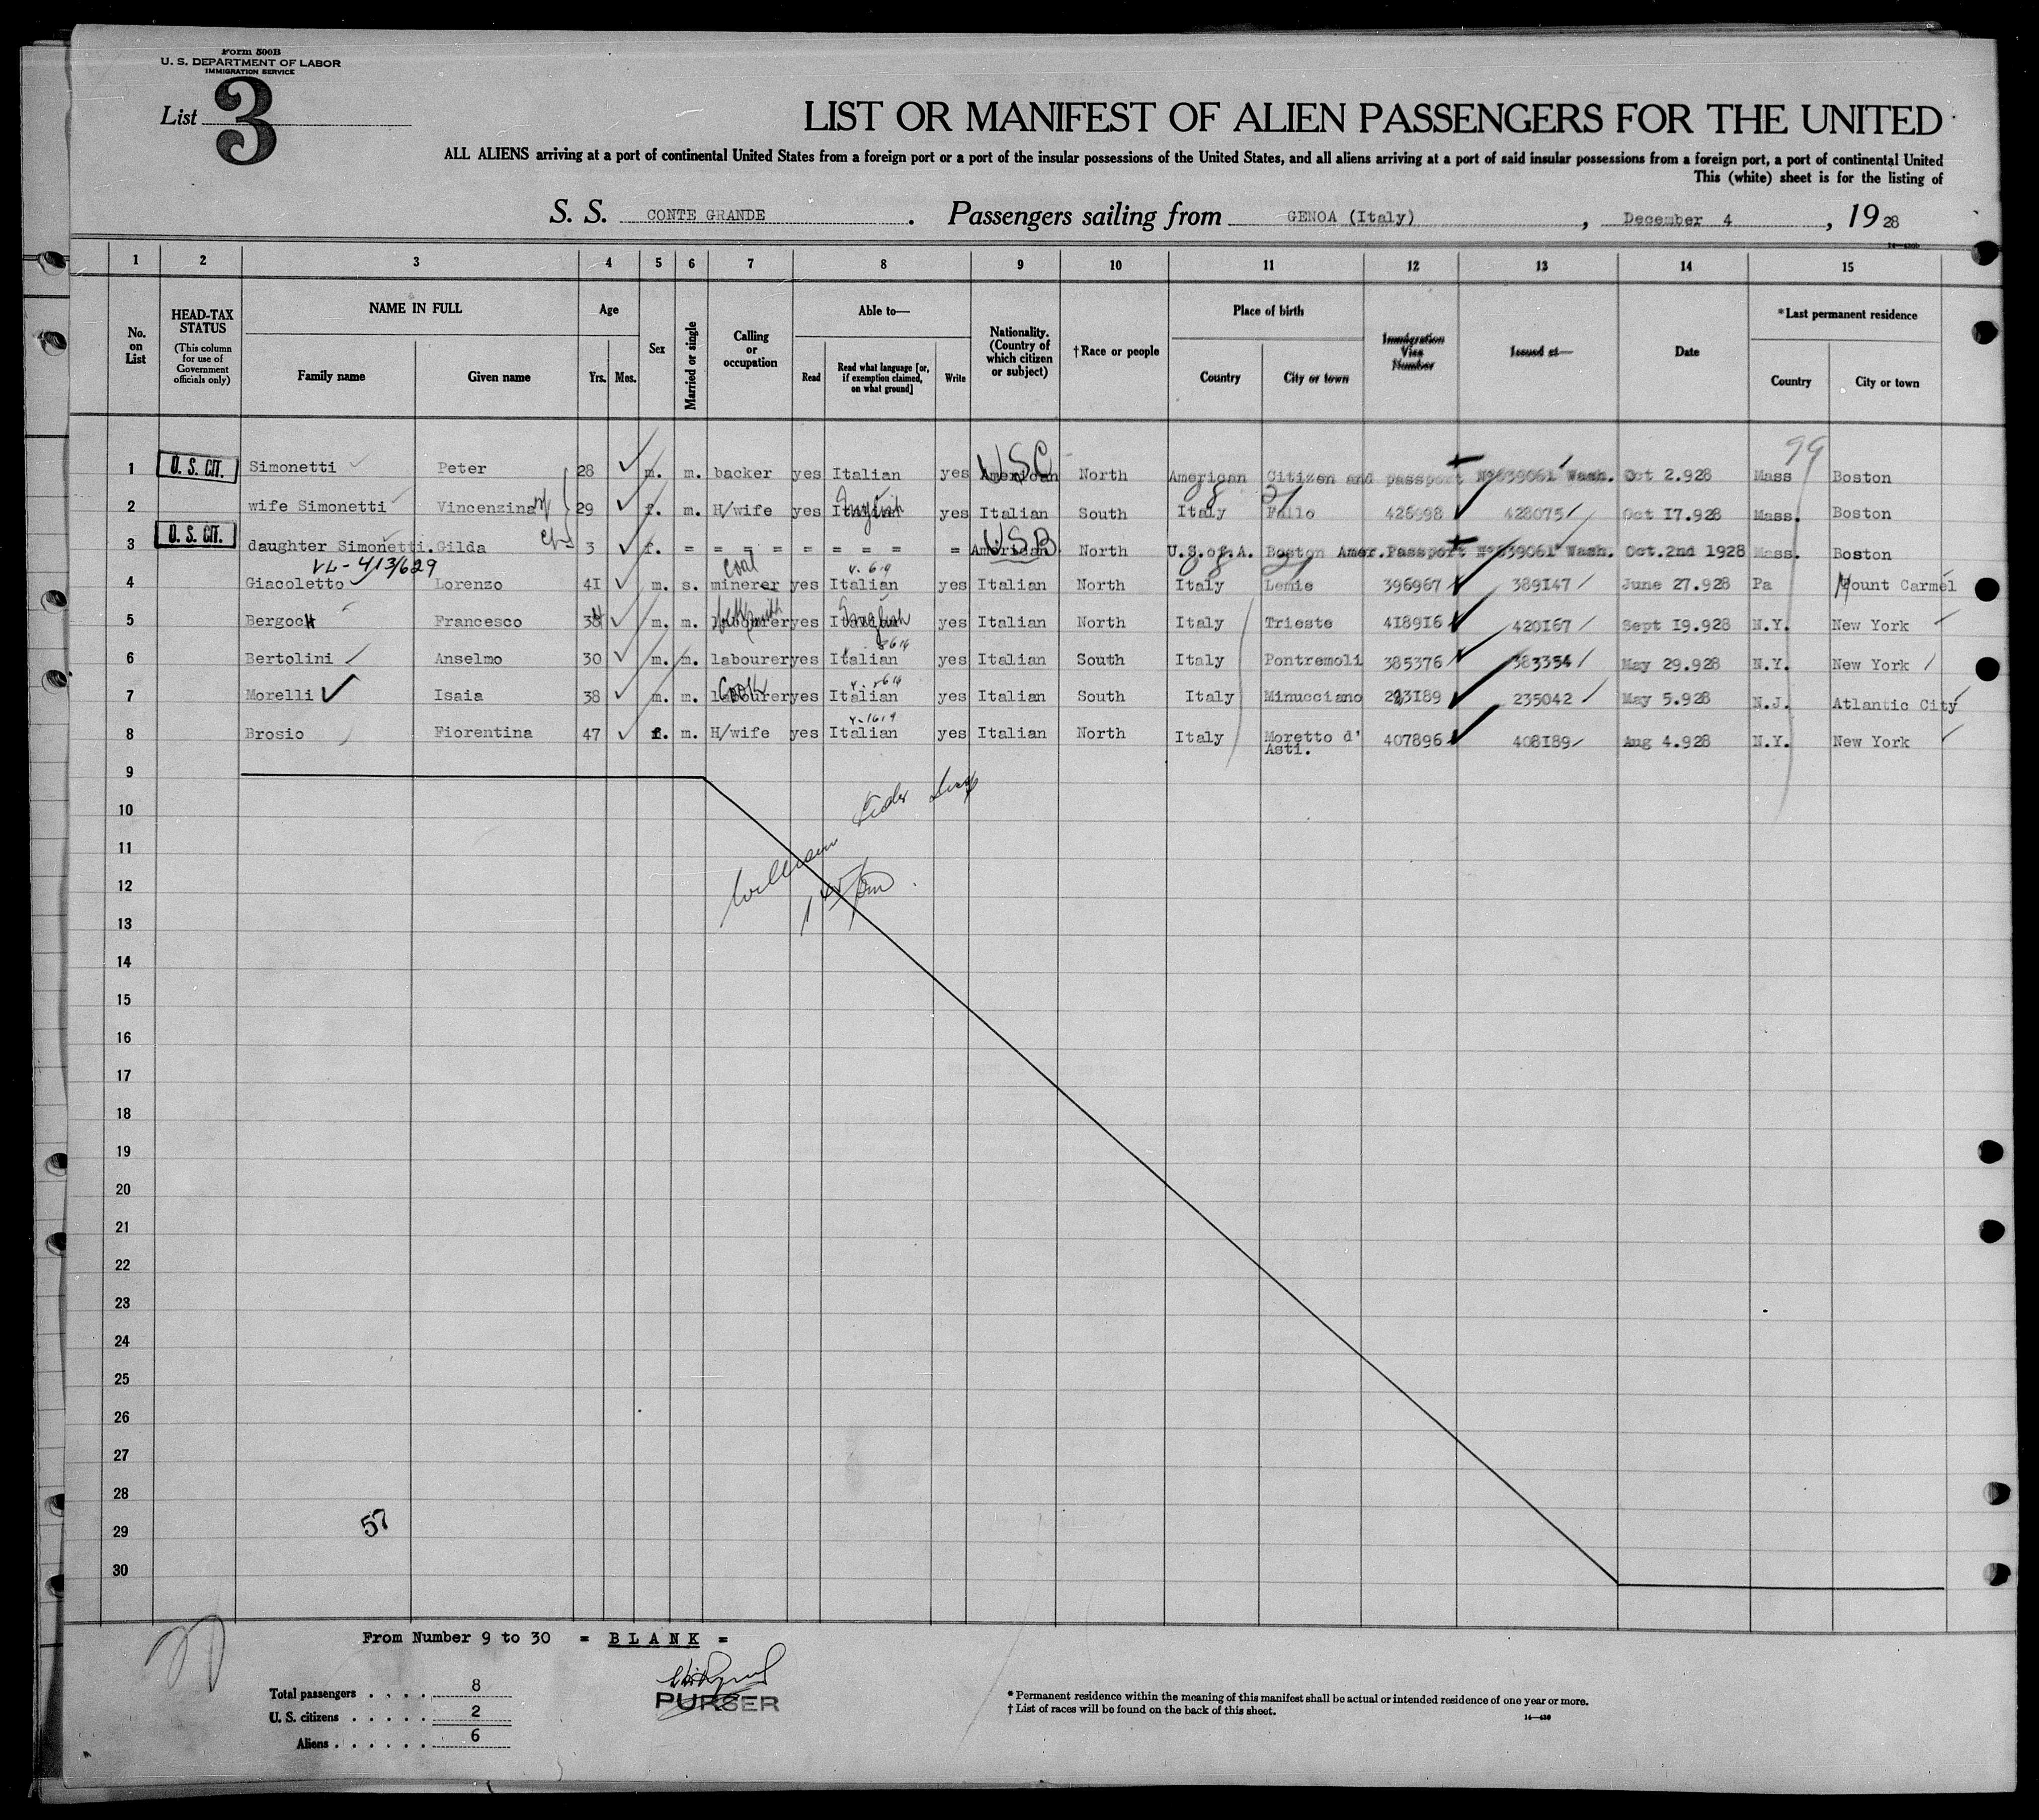 Form 500B
U. S. DEPARTMENT OF LABOR
IMMIGRATION SERVICE
List 3
LIST OR MANIFEST OF ALIEN PASSENGERS FOR THE UNITED
ALL ALIENS arriving at a port of continental United States from a foreign port or a port of the insular possessions of the United States, and all aliens arriving at a port of said insular possessions from a foreign port, a port of continental United
This (white) sheet is for the listing of
S. S. CONTE GRANDE. Passengers sailing from GENOA (Italy), December 4, 19 28
1 2 3 4 5 6 7 8 9 10 11 12 13 14 15
No. on List
HEAD-TAX STATUS
(This column for use of Government officials only)
NAME IN FULL
Family name
Given name
Age
Yrs.
Mos.
Sex
Married or single
Calling or occupation
Able to—
Read
Read what language [or, if exemption claimed, on what ground]
Write
Nationality. (Country of which citizen or subject)
†Race or people
Place of birth
Country
City or town
Immigration Visa Number
Issued at—
Date
*Last permanent residence
Country
City or town
99
1 U. S. CIT. Simonetti Peter 28 m. m. backer yes Italian yes American USC North American Citizen and passport Nº639061 Wash. Oct 2.928 Mass Boston
2 wife Simonetti Vincenzina 29 f. m. H/wife yes Italian English yes Italian South Italy Fallo 426998 428075 Oct 17.928 Mass. Boston
3 U. S. CIT. daughter Simonetti. Gilda 3 f. = = = = = = = = = American USB North U.S.of.A. Boston Amer.Passport Nº639061 Wash. Oct.2nd 1928 Mass. Boston
VL-413/629
4 Giacoletto Lorenzo 41 m. s. coal minerer yes Italian yes Italian North Italy Lemie 396967 389147 June 27.928 Pa Mount Carmel
5 BergocH Francesco 38 m. m. labourer yes Italian English yes Italian North Italy Trieste 418916 420167 Sept 19.928 N.Y. New York
6 Bertolini Anselmo 30 m. m. labourer yes Italian yes Italian South Italy Pontremoli 385376 383354 May 29.928 N.Y. New York
7 Morelli Isaia 38 m. m. labourer Cook yes Italian yes Italian South Italy Minucciano 223189 235042 May 5.928 N.J. Atlantic City
8 Brosio Fiorentina 47 f. m. H/wife yes Italian yes Italian North Italy Moretto d' Asti. 407896 408189 Aug 4.928 N.Y. New York
9
10
11
12
13
14
15
16
17
18
19
20
21
22
23
24
25
26
27
28
29
30
57
From Number 9 to 30 = BLANK =
Total passengers . . . . 8
U. S. citizens . . . . . 2
Aliens . . . . . . 6
PURSER
* Permanent residence within the meaning of this manifest shall be actual or intended residence of one year or more.
† List of races will be found on the back of this sheet.
14—430